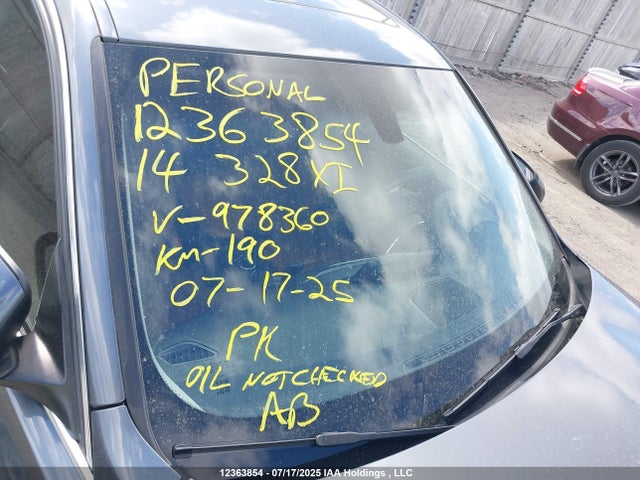 PERSONAL
12363854
14 328XI
V-978360
KM-190
07-17-25
PK
OIL NOT CHECKED
AB
12363854 - 07/17/2025 IAA Holdings , LLC